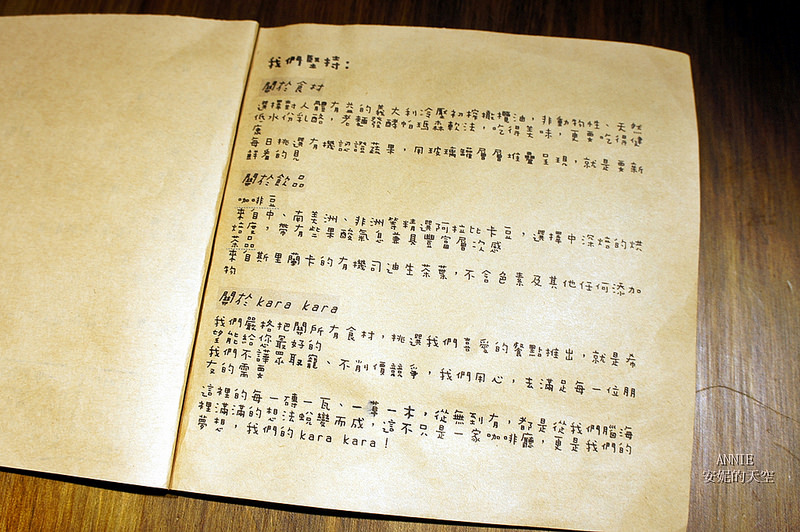 我們堅持：
關於食材
選擇對人體有益的義大利冷壓初榨橄欖油，非動物性、天然
低水份乳酪，老麵發酵帕瑪森軟法，吃得美味，更要吃得健
康
每日挑選有機認證蔬果，用玻璃罐層層堆疊呈現，就是要新
鮮看的見
關於飲品
咖啡豆
來自中、南美洲、非洲等精選阿拉比卡豆，選擇中深焙的烘
焙度，帶有些果酸氣息兼具豐富層次感
茶品
來自斯里蘭卡的有機司迪生茶葉，不含色素及其他任何添加
物
關於kara kara
我們嚴格把關所有食材，挑選我們喜愛的餐點推出，就是希
望能給您最好的
我們不譁眾取寵、不削價競爭，我們用心，去滿足每一位朋
友的需要
這裡的每一磚一瓦、一草一木，從無到有，都是從我們腦海
裡滿滿的想法蛻變而成，這不只是一家咖啡廳，更是我們的
夢想，我們的kara kara！
ANNIE
安妮的天空